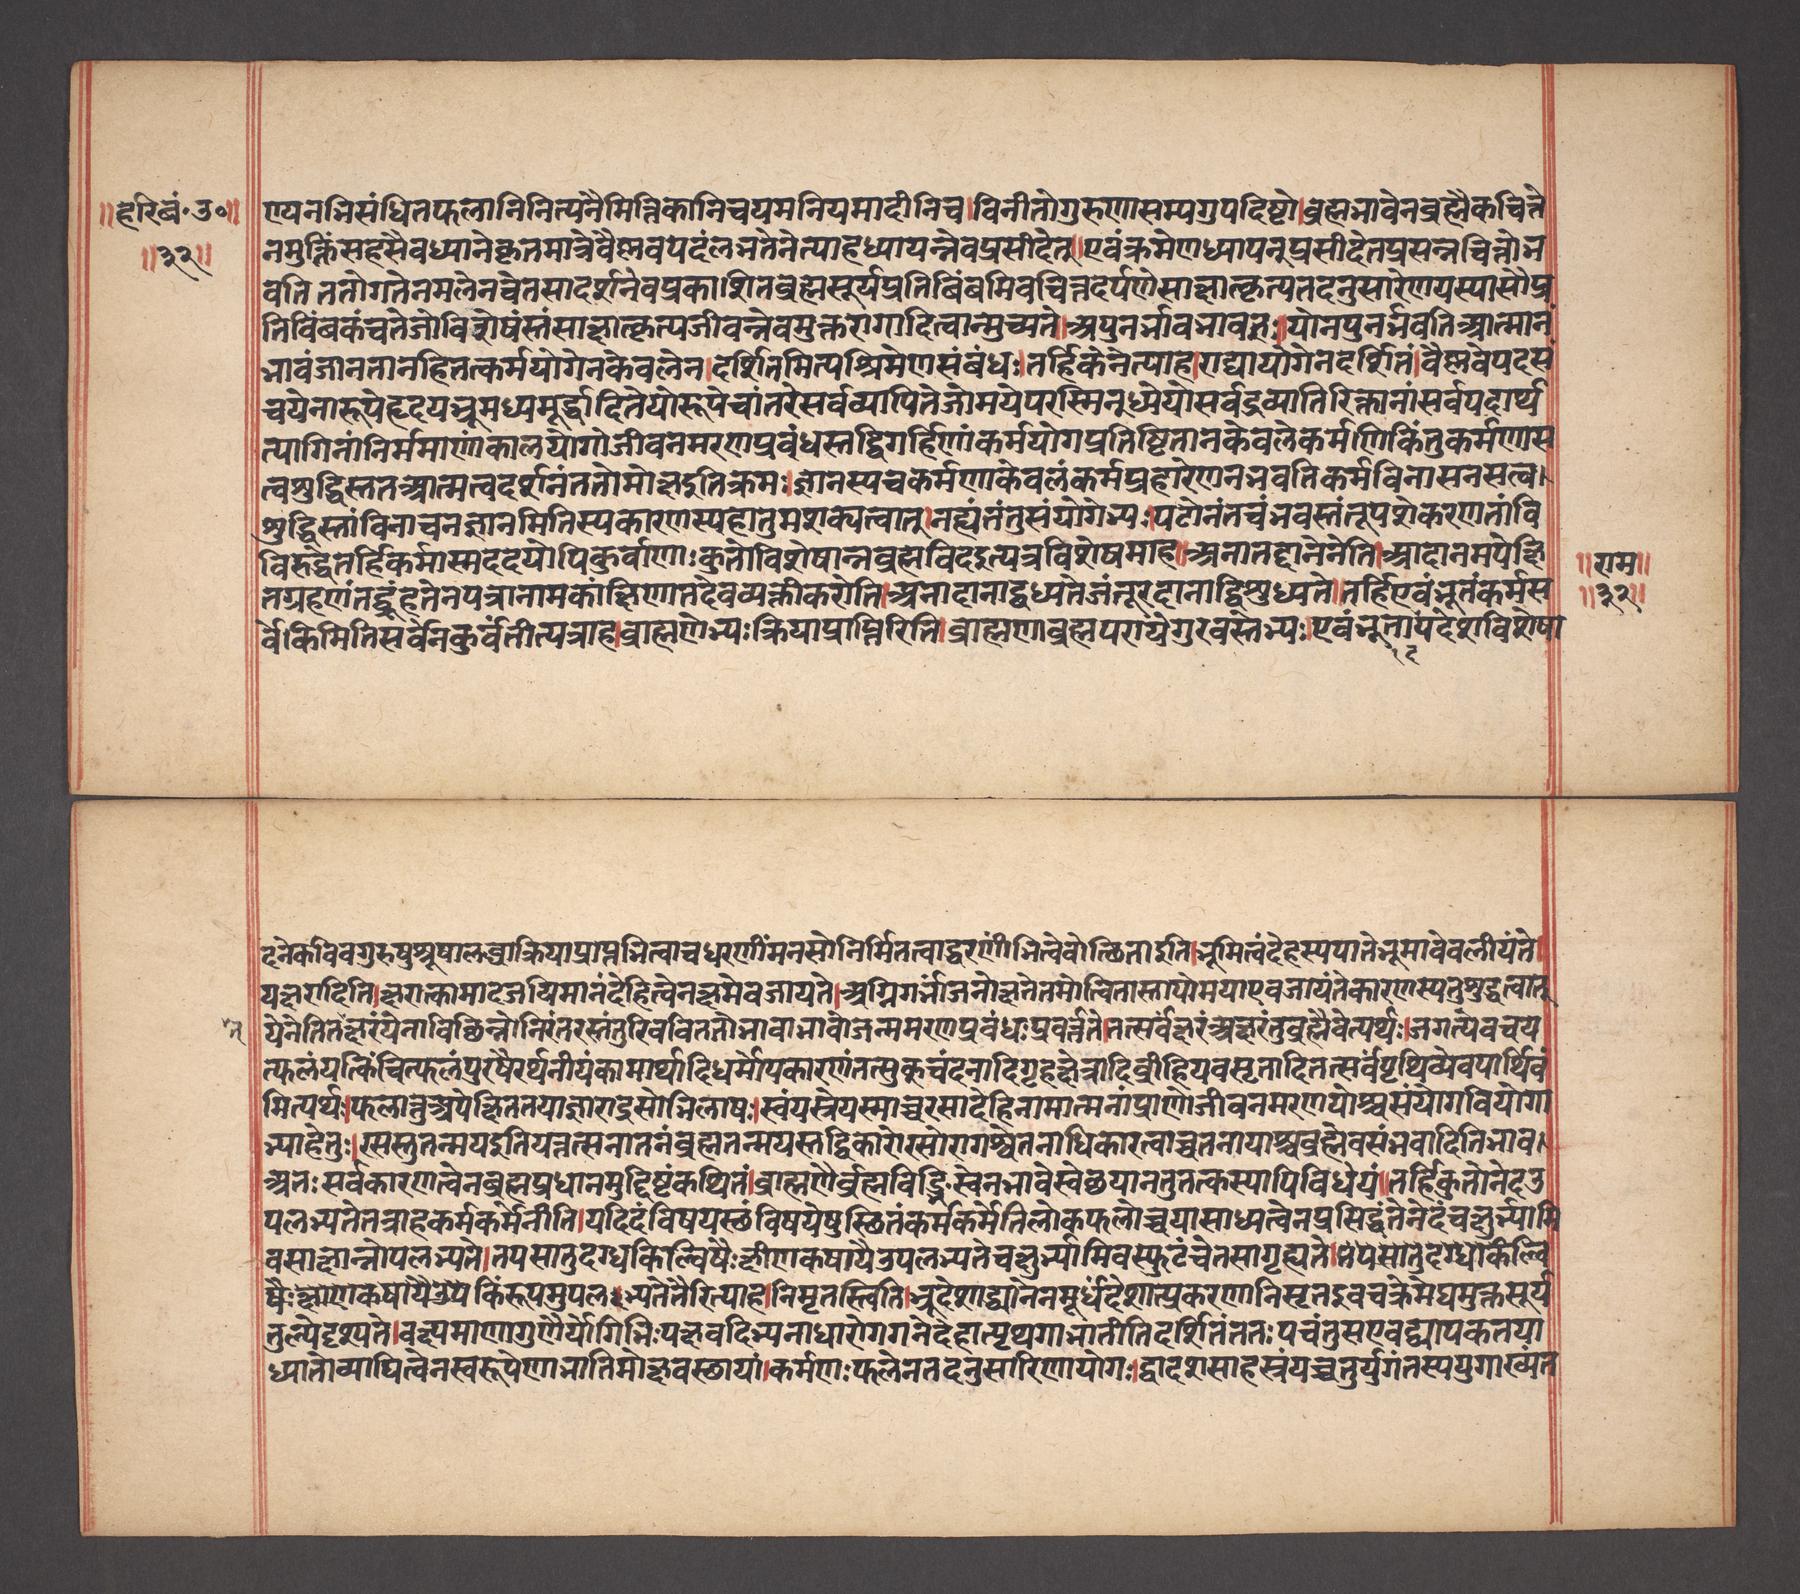 ॥हरिबं॰उ॰॥
॥३२॥
ण्यनभिसंधितफलानिनित्यनैमित्तिकानिचयमनियमादीनिच।विनीतोगुरुणासम्यगुपदिष्टो।ब्रह्मभावेनब्रह्मैकचित्ते
नमुक्तिंसहसैवध्यानेकृतमात्रेवैष्णवपदंलभतेनेत्याहध्यायन्नेवप्रसीदेत्॥एवंक्रमेणध्यापनुप्रसीदेतप्रसन्नचित्तोभ
वति ततोगतेनमलेनचेतसादर्शनेवप्रकाशितब्रह्मसूर्यप्रतिबिंबमिवचित्तदर्पणेसाक्षात्कृत्यतदनुसारेणयस्यासौप्र
तिविंबकंचतेजोविशेषंस्तंसाक्षात्कृत्यजीवन्नेवमुक्तरागादित्वान्मुच्यते।अपुनर्भावभावतः।योनपुनर्भवतिआत्मानं
भावंजानतानहितत्कर्मयोगेनकेवलेन।दर्शितमित्यग्रिमेणसंबंधः।तर्हिकेनेत्याह।राद्यायोगेनदर्शितं।वैष्णवेपदसं
चयेनारूपेहृदयभ्रूमध्यमूर्द्धादितेयोरूपेचांतरेसर्वव्यापितेजोमयेपरस्मिन्ध्येयोसर्वद्रव्यातिरिक्तानांसर्वपदार्थ
त्यागिनांनिर्ममाणांकालयोगोजीवनमरणप्रवंधस्तद्विगर्हिणांकर्मयोगप्रतिष्टितानकेवलेकर्मणिकिंतुकर्मणास
त्वशुद्धिस्ततआत्मत्वदर्शनंततोमोक्षइतिक्रमः।ज्ञानस्यचकर्मणाकेवलंकर्मप्रहारेणनभवतिकर्मविनासनसत्व।
शुद्धिस्तांविनाचनज्ञानमितिस्यकारणस्यहातुमशक्यत्वात्।नह्यंतंतुसंयोगेभ्यः।पटोनंतचंभवस्तंतूपशेकरणतांवि
विरुद्धतर्हिकर्मास्मददयोपिकुर्वाणाःकुतोविशेषान्नब्रह्मविदइत्यत्रविशेषमाह।अनातद्दानेनेति।आदानमपेक्षि
तग्रहणंतद्धूंहतेनपत्रानामकांक्षिणातदेवव्यक्तीकरोति।अनादानाद्बध्यतेजंतूरदानाद्विशुध्यते।तर्हिएवंभूतंकर्मस
र्वेकिमितिसर्वेनकुर्वंतीत्यत्राह।ब्राह्मणेभ्यःक्रियाप्राप्तिरिति।ब्राह्मणाब्रह्मपरायेगुरवस्तेभ्यः।एवंभूतोपदेशविशेषा
॥राम॥
॥३२॥
दनेकविवगुरुषुश्रूषालब्धाक्रियाप्राप्तभित्वाचधरणींमनसोनिर्मितत्वाद्धरणींभित्वेवोत्थिताइति।भूमित्वंदेहस्यपातेभूमावेवलीयंते।
यक्षरादिति।क्षरात्कामादजयिमानंदेहित्वेनक्षमेवजायते।अग्निगर्भाजनोक्षतेतमोत्थितास्तायोमयाएवजायंतेकारणस्यतुशुद्धत्वात्
येनेतितेक्षरंयेनाविछिन्नोनिरंतरस्तंतुरिवविततोभावाभावोजन्ममरणप्रबंधःप्रवर्त्तते।तत्सर्वंक्षरंअक्षरंतुब्रह्मैवेत्यर्थः।जगत्येवचय
त्फलंयत्किंचित्फलंपुरुषैरर्थनीयंकामार्थादिधर्मोपकारणंतत्स्रक्चंदनादिगृहक्षेत्रादिव्रीहियवसृतादितत्सर्वंपृथिव्येवपार्थिवं
मित्यर्थः।फलात्तुअपेक्षिततयाज्ञाराद्रसोभिलाषः।स्वंयस्त्रेयस्माच्चरसादेहिनामात्मनांप्राणोजीवनमरणयोश्चसंयोगवियोगा
भ्याहेतुः।रसस्तुतन्मयइतियत्नत्सनातनंब्रह्मतन्मयस्तद्विकारोरसोरागश्चेतनाधिकारत्वाच्चतनायाश्चब्रह्मेवसंभवादितिभाव।
अतःसर्वकारणत्वेनब्रह्मप्रधानमुद्दिष्टंकथितं।ब्राह्मणैर्ब्रह्मविद्भिःस्वेनभावेस्वेछयानतुतत्कस्यापिविधेयं॥तर्हिकुतोनेदउ
पलभ्यतेतत्राहकर्मकर्मेनीति।यदिदंविषयस्छंविषयेषुस्छितंकर्मकर्मेतिलोकफलोच्चयासाध्यत्वेनप्रसिद्धंतेनेदंचक्षुर्भ्यामि
वसाक्षान्नोपलभ्यते।तपसातुदग्धकिल्बिषैःक्षीणाकषायैउपलभ्यतेचक्षुर्भ्यामिवस्फुटंचेतसागृह्यते।तपसातुदग्धकिल्बि
षैःक्षीणकषायैउपेकिंरूपमुपलभ्यतेतैरित्याह।निसृतस्त्विति।भ्रुदेशाद्ध्यानेनमूर्धदेशात्प्रकरणानिसृतइवचक्रेमेघमुक्तसूर्य
तुल्येदृश्यते।वक्ष्यमाणागुणैर्योगिभिःपक्षवदिभ्यनाधारोगगनेदेहात्पृथगाभातीतिदर्शितंततःपचंतुसएवद्यापकतया
ध्यातोव्यापित्वेनस्वरूपेणाभातिमोक्षवस्छायां।कर्मणःफलेनतदनुसारिणायोगः।द्वादशसाहस्रंयच्चतुर्युगंतस्ययुगाख्यंत